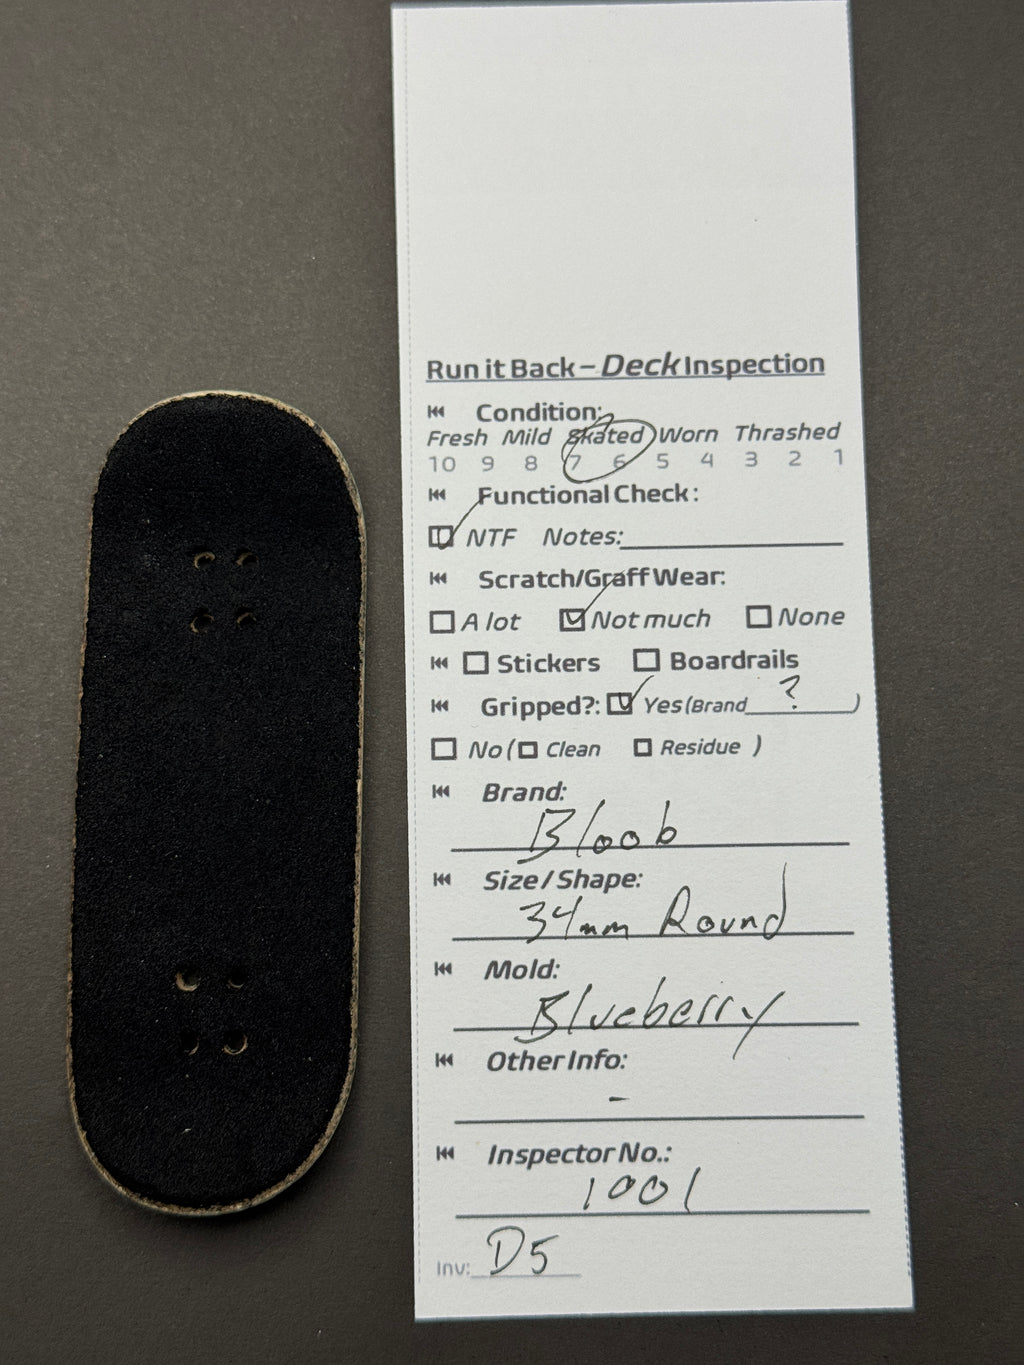 Run it Back – Deck Inspection
Condition:
Fresh Mild Skated Worn Thrashed
10 9 8 7 6 5 4 3 2 1
Functional Check:
NTF Notes:
Scratch/Graff Wear:
A lot Not much None
Stickers Boardrails
Gripped?: Yes (Brand ? )
No ( Clean Residue )
Brand:
Bloob
Size/Shape:
34mm Round
Mold:
Blueberry
Other Info:
-
Inspector No.:
1001
Inv: D5